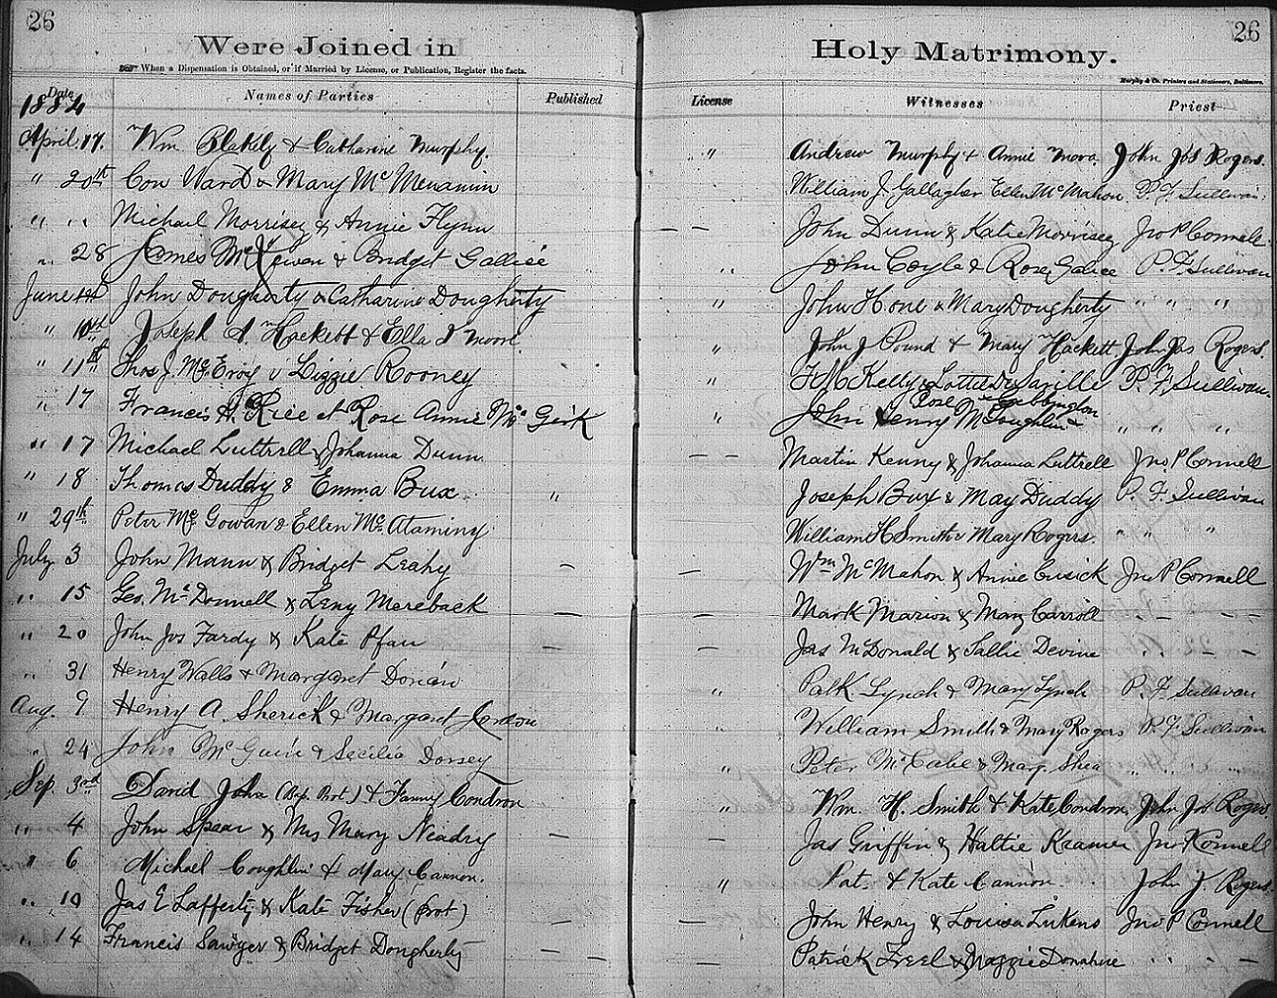 26
Were Joined in
When a Dispensation is Obtained, or if Married by License, or Publication, Register the facts.
Date Names of Parties Published
1884
April 17. Wm Blakely & Catharine Murphy.
" 20th Con Ward & Mary Mc Menamin
" " Michael Morrisey & Annie Flynn
" 28 James Mc Kewen & Bridget Gallieé
June John Dougherty & Catharine Dougherty
" 10th Joseph A. Hackett & Ella
" 11th Thos J. Mc Evoy & Lizzie Rooney
" 17 Francis A. Rice et Rose Annie Mc Girk
" 17 Michael Luttrell & Johanna Dunn
" 18 Thomas Duddy & Emma Bux "
" 29th Peter Mc Gowan & Ellen Mc
July 3 John Mann & Bridget Leahy —
" 15 Geo. Mc Donnell & Leny Mereback —
" 20 John Jos Fardy & Kate Pfau —
" 31 Henry Walls & Margaret Dorian
Aug. 9 Henry A Sherick & Margaret
" 24 John Mc Guire & Secilia Dorsey
Sep. 3rd David John (Bap. Prot.) & Fanny Condron
" 4 John Spear & Mrs Mary Neadry —
" 6 Michael Coughlin & Mary Cannon.
" 10 Jas E Lafferty & Kate Fisher (Prot) —
" 14 Francis Sawyer & Bridget Dougherty — —
26
Holy Matrimony.
Murphy & Co. Printers and Stationers, Baltimore.
License Witnesses Priest
" Andrew Murphy & Annie John Jos Rogers.
William J. Gallagher Ellen McMahon P. F. Sullivan
— — John Dunn & Katie Morrisey Jno P Connell
" John Coyle & Rose Galice P. F. Sullivan
" John Hone & Mary Dougherty " " "
" John J Pound & Mary Hackett John Jos Rogers.
" Kelly & Lottie P. F. Sullivan
Rose
" John Henry McLoughlin & " " "
— — Martin Kenny & Johanna Luttrell Jno P Connell
Joseph Bux & May Duddy P. F. Sullivan
William H Smith & Mary Rogers. " " "
— Wm McMahon & Annie Cusick Jno P Connell
— Mark Marion & Mary Carroll " — — —
— Jas McDonald & Sallie Devine " " — —
" Patk Lynch & Mary Lynch P. F. Sullivan
William Smith & Mary Rogers P. F. Sullivan
" Peter McCabe & Mary Shea " " "
" Wm. H. Smith & Kate Condron John Jos Rogers
— Jas Griffin & Hattie Kramer Jno P Connell
" Pat. & Kate Cannon. John J. Rogers.
— John Henry & Louisa Lukens Jno P Connell
— Patrick Freel & Maggie Donahue " " - —